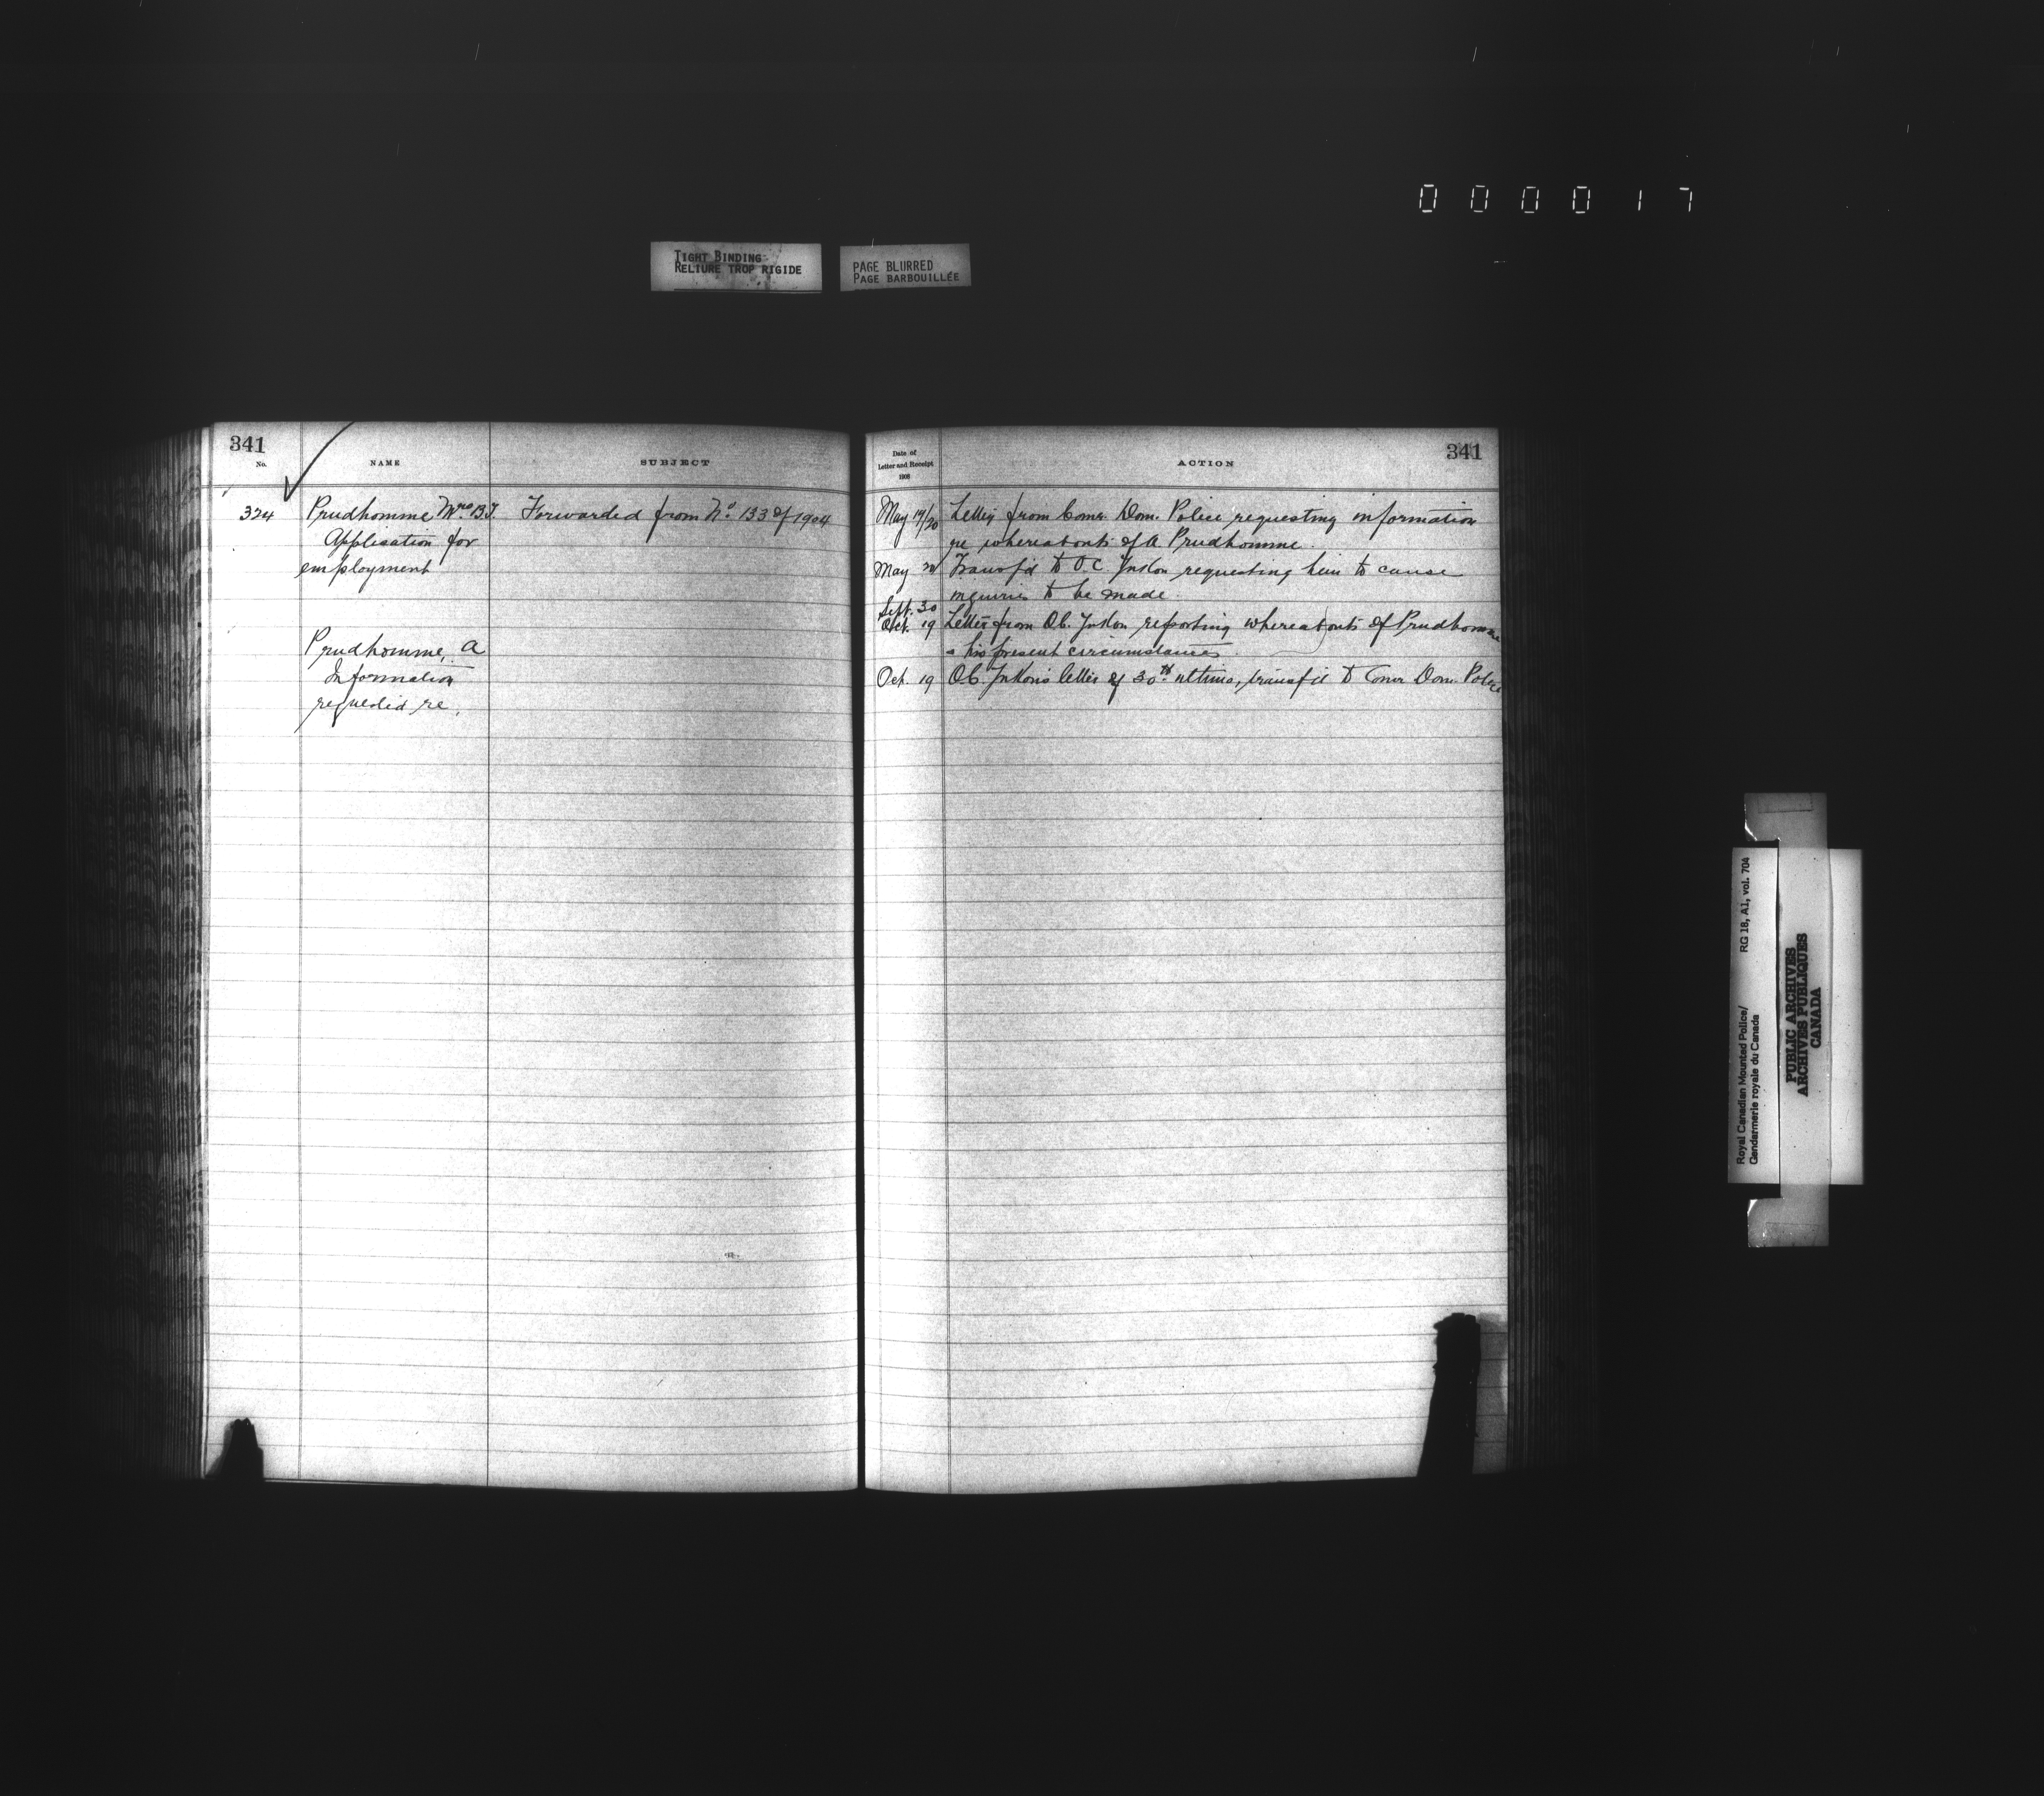 000017
TIGHT BINDING
RELIURE TROP RIGIDE
PAGE BLURRED
PAGE BARBOUILLÉE
341
No.
NAME
SUBJECT
324
Prudhomme Mrs B.T.
Forwarded from No. 133 of 1904
Application for
employment
Prudhomme, A
Information
requested re.
Date of
Letter and Receipt
1908
ACTION
341
May 19/20
Letter from Comr. Dom. Police requesting information
re whereabouts of A Prudhomme.
May 21
Transf'd to O.C. Yukon requesting him to cause
inquiries to be made.
Sept. 30
Oct. 19
Letter from O.C. Yukon reporting whereabouts of Prudhomme
& his present circumstances.
Oct. 19
O.C. Yukon's letter of 30th ultimo, transf'd to Comr Dom. Police
Royal Canadian Mounted Police/
Gendarmerie royale du Canada
RG 18, A1, vol. 704
PUBLIC ARCHIVES
ARCHIVES PUBLIQUES
CANADA